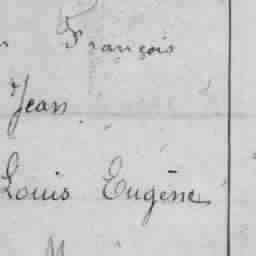 François
Jean
Louis Eugène